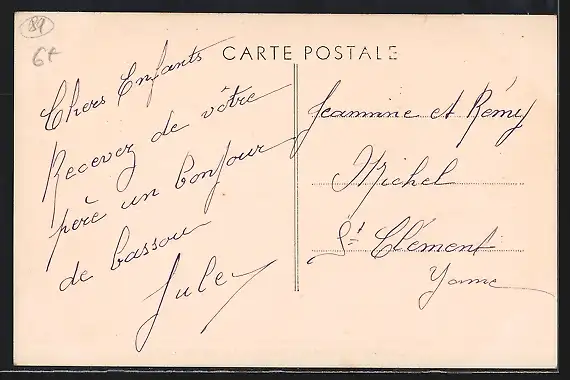 81
6+
CARTE POSTALE
Chers Enfants
Recevez de vôtre
père un bonjour
de bassou
Jules
Jeannine et Rémy
Michel
St Clément
Yonne